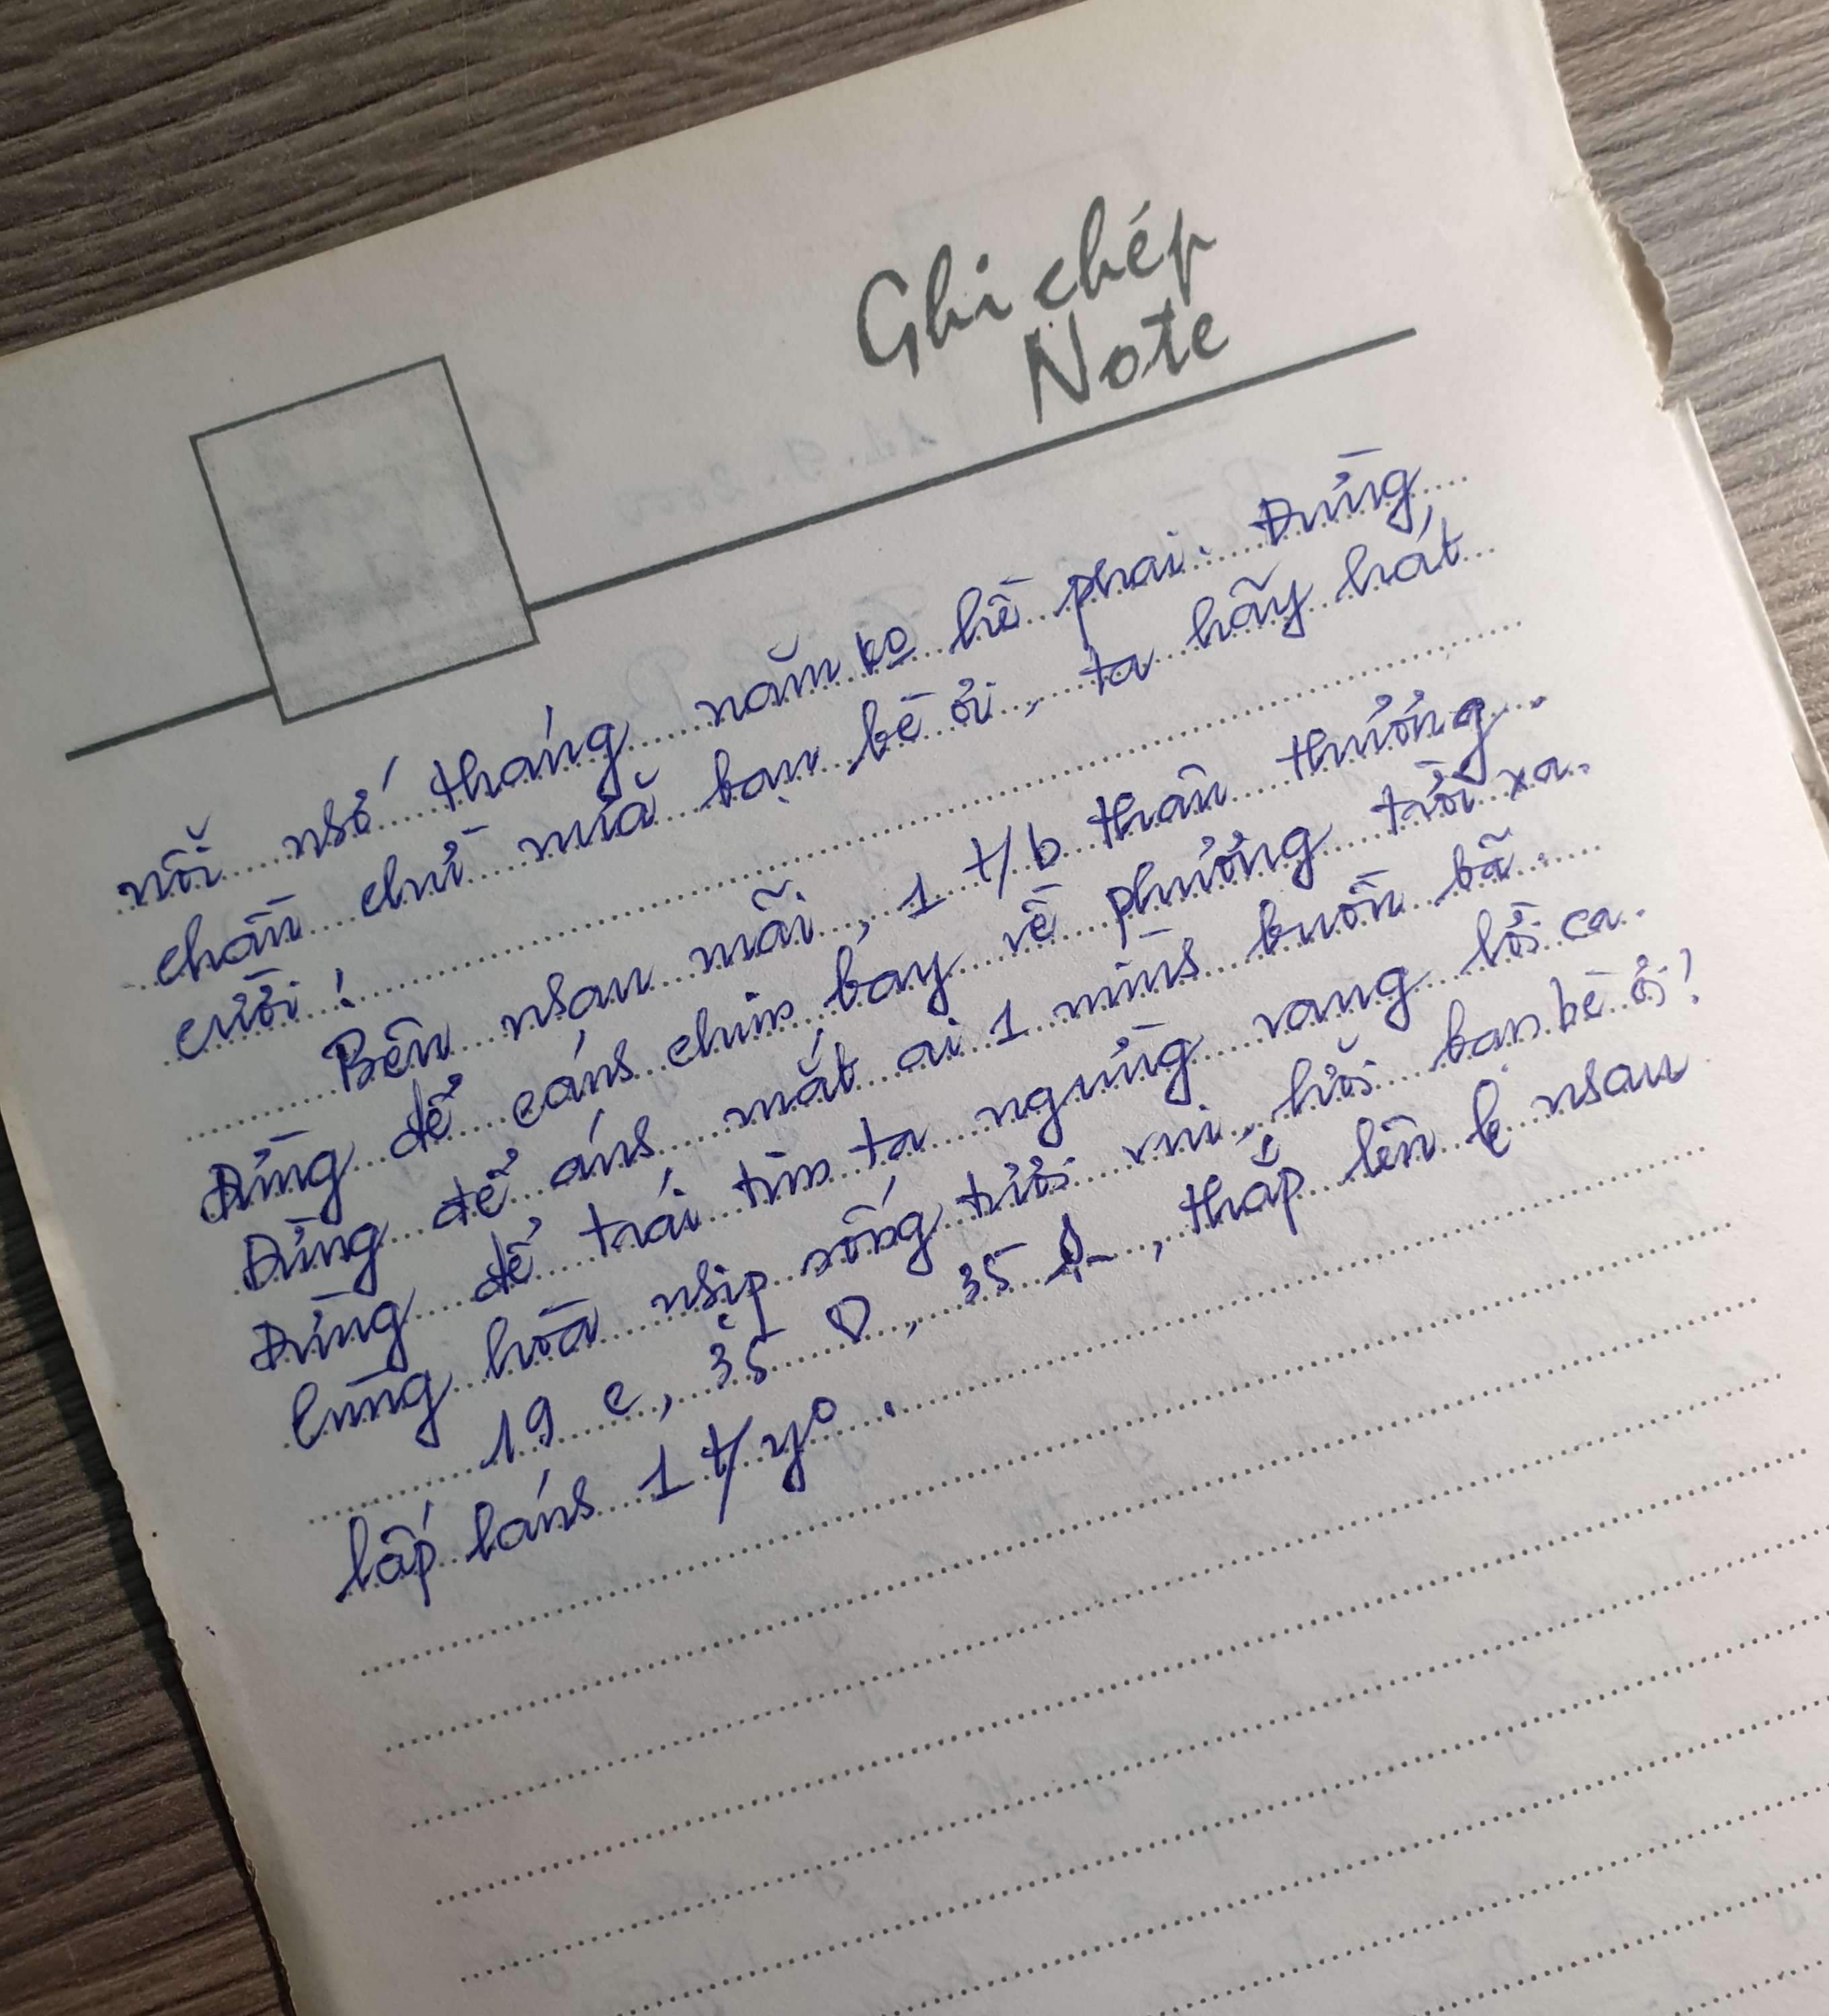 Ghi chép
Note
nỗi nhớ tháng năm ko hề phai. Đừng
chần chừ nữa bạn bè ơi, ta hãy hát
cười!
Bên nhau mãi, 1 t/b thân thương.
Đừng để cánh chim bay về phương trời xa.
Đừng để ánh mắt ai 1 mình buồn bã.
Đừng để trái tim ta ngừng vang lời ca.
Cùng hòa nhịp sống tươi vui, hỡi bạn bè ơi!
19 e, 35, 35, thắp lên k nhau
lấp lánh 1 t/yo.